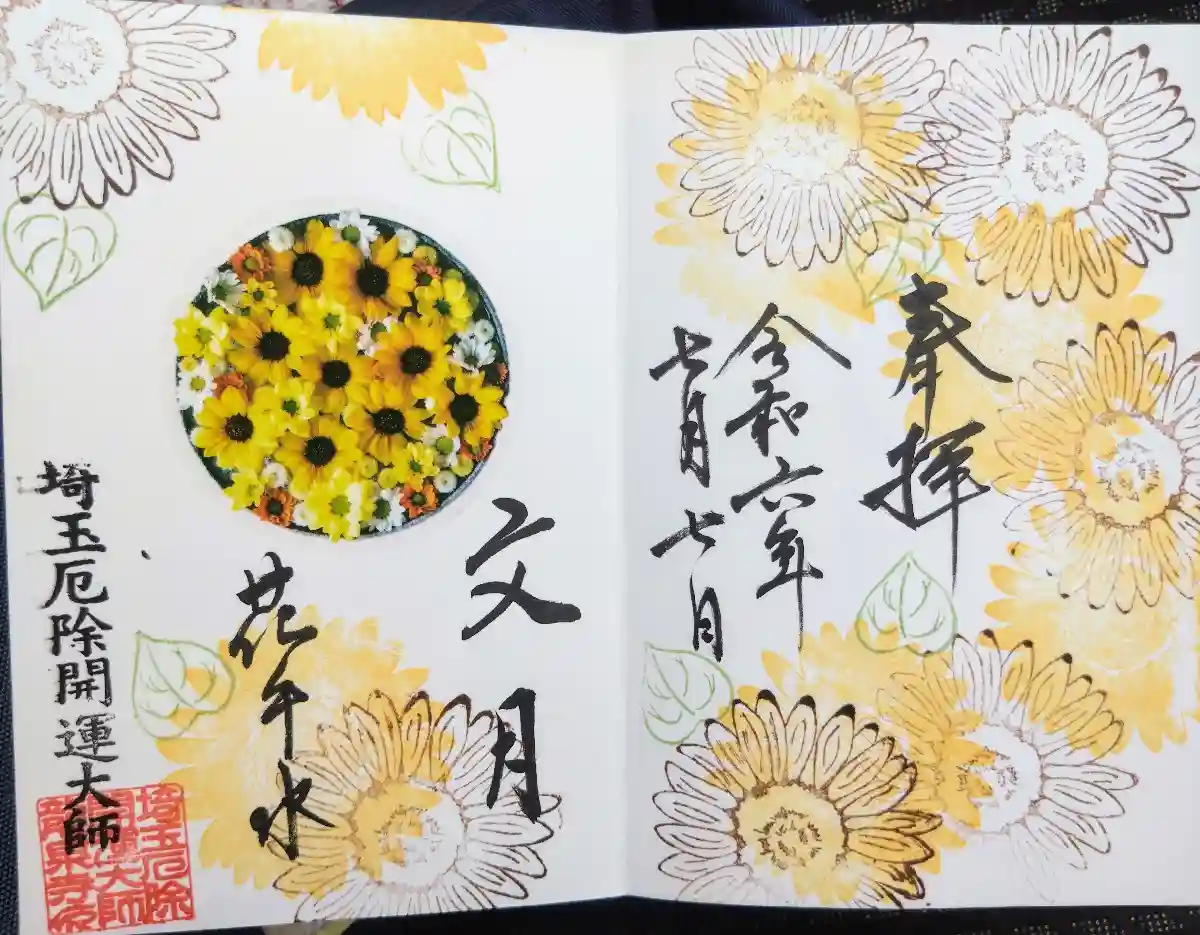 奉拝
令和六年
七月七日
文月
花手水
埼玉厄除開運大師
埼玉厄除
開運大師
龍泉寺